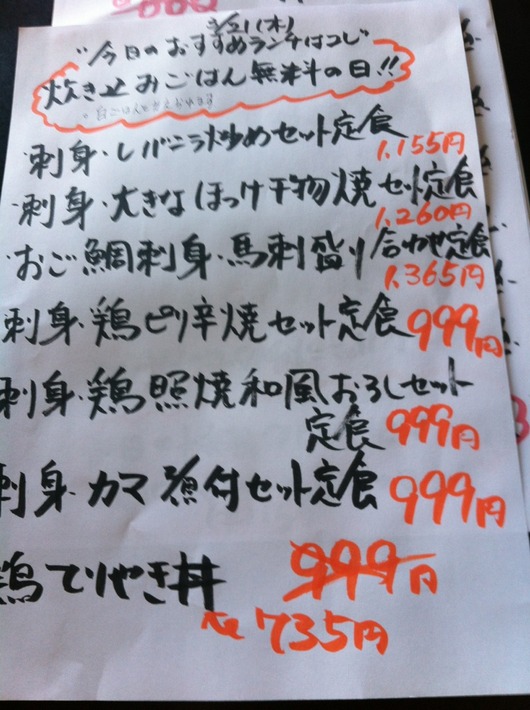 3/21(木)
"今日のおすすめランチはコレ"
炊き込みごはん無料の日!!
刺身・レバニラ炒めセット定食
1,155円
刺身・大きなほっけ干物焼セット定食
1,260円
おご鯛刺身・馬刺盛り合わせ定食
1,365円
刺身・鶏ピリ辛焼セット定食 999円
刺身・鶏照焼和風おろしセット
定食 999円
刺身・カマ煮付セット定食 999円
鶏てりやき丼 999円
735円